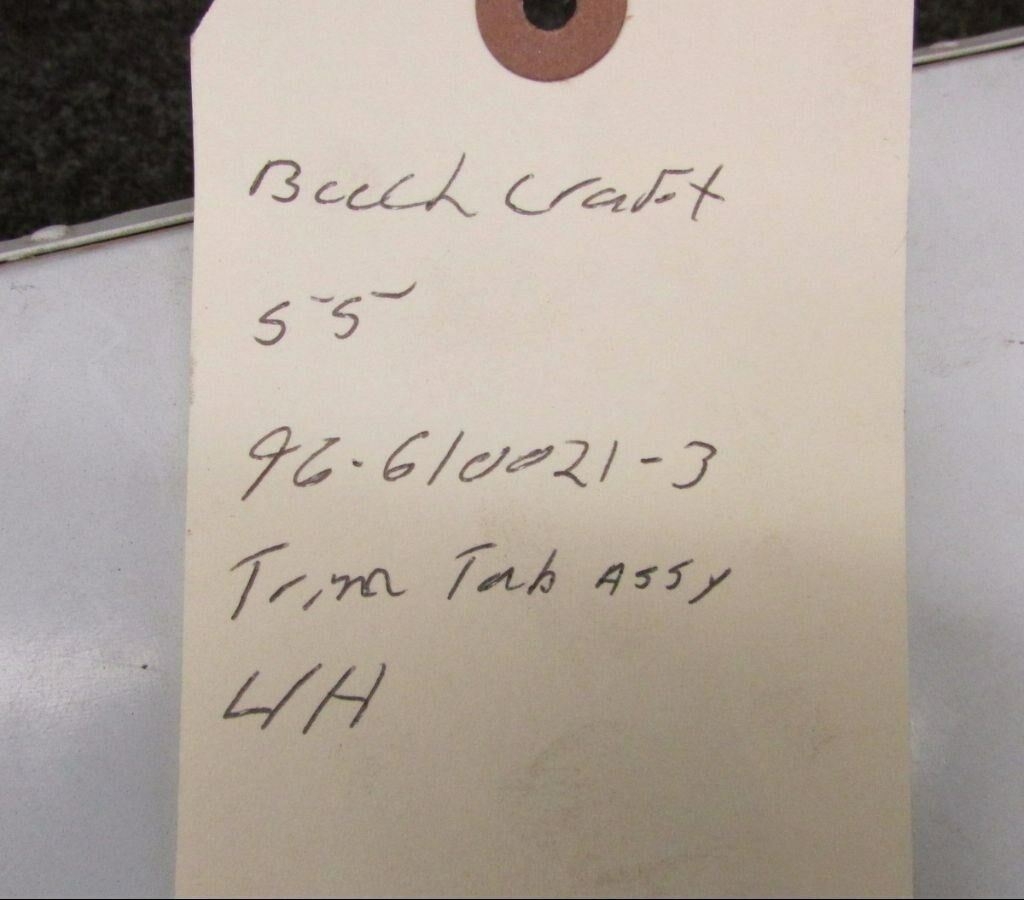 Beech Craft
55
96-610021-3
Trim Tab ASSY
L/H